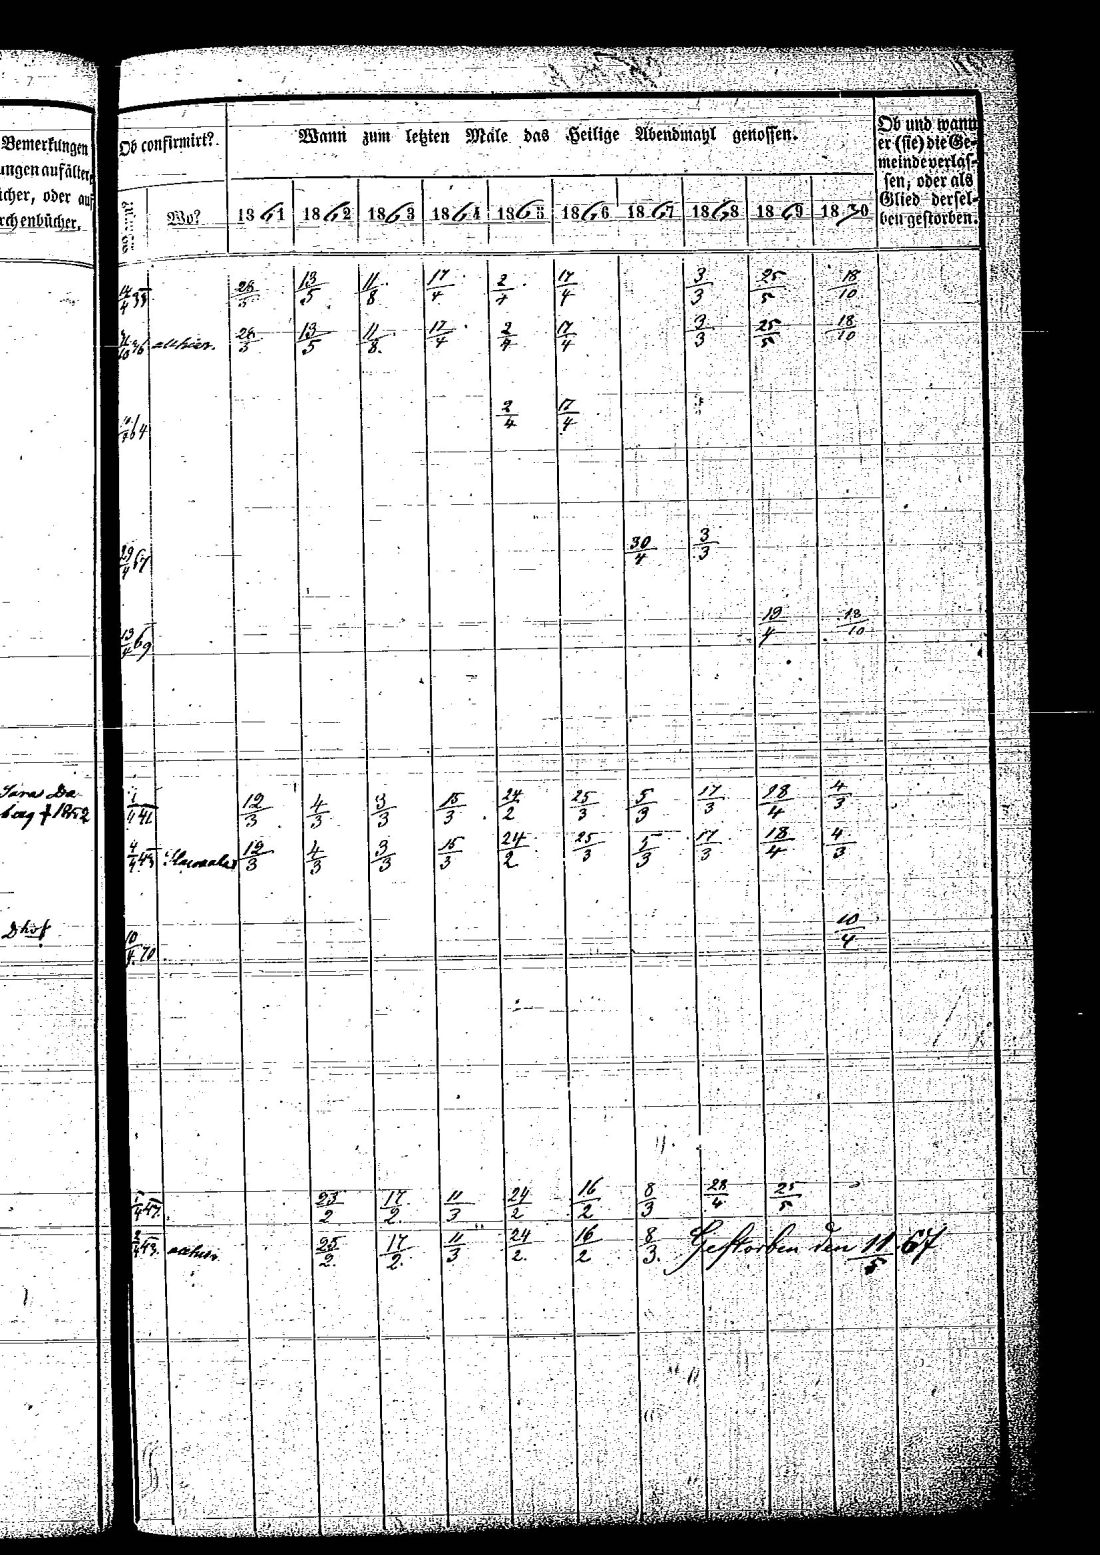 Bemerkungen
ungen auf älter
icher, oder auf
rchenbücher.
Ob confirmirt?
Wann zum letzten Male das Heilige Abendmahl genossen.
Ob und wann
er (sie) die Ge-
meinde verlas-
sen, oder als
Glied dersel-
ben gestorben.
Wo?
1861 1862 1863 1864 1865 1866 1867 1868 1869 1870
13/5 11/8 17/4 2/4 17/4 3/3 25/5 18/10
26/3 13/5 11/8 17/4 2/4 17/4 3/3 25/5 18/10
64 2/4 17/4
29/4 67 30/4 3/3
13/4 69 19/4 18/10
12/3 4/3 3/3 15/3 24/2 25/3 5/3 17/3 28/4 4/3
† 1852
4/4 43 12/3 4/3 3/3 15/3 24/2 25/3 5/3 17/3 18/4 4/3
Dhof
10/4 70 10/4
47 23/2 17/2 11/3 24/2 16/2 8/3 28/4 25/5
43 25/2 17/2 11/3 24/2 16/2 8/3 Gestorben den 11/5 67